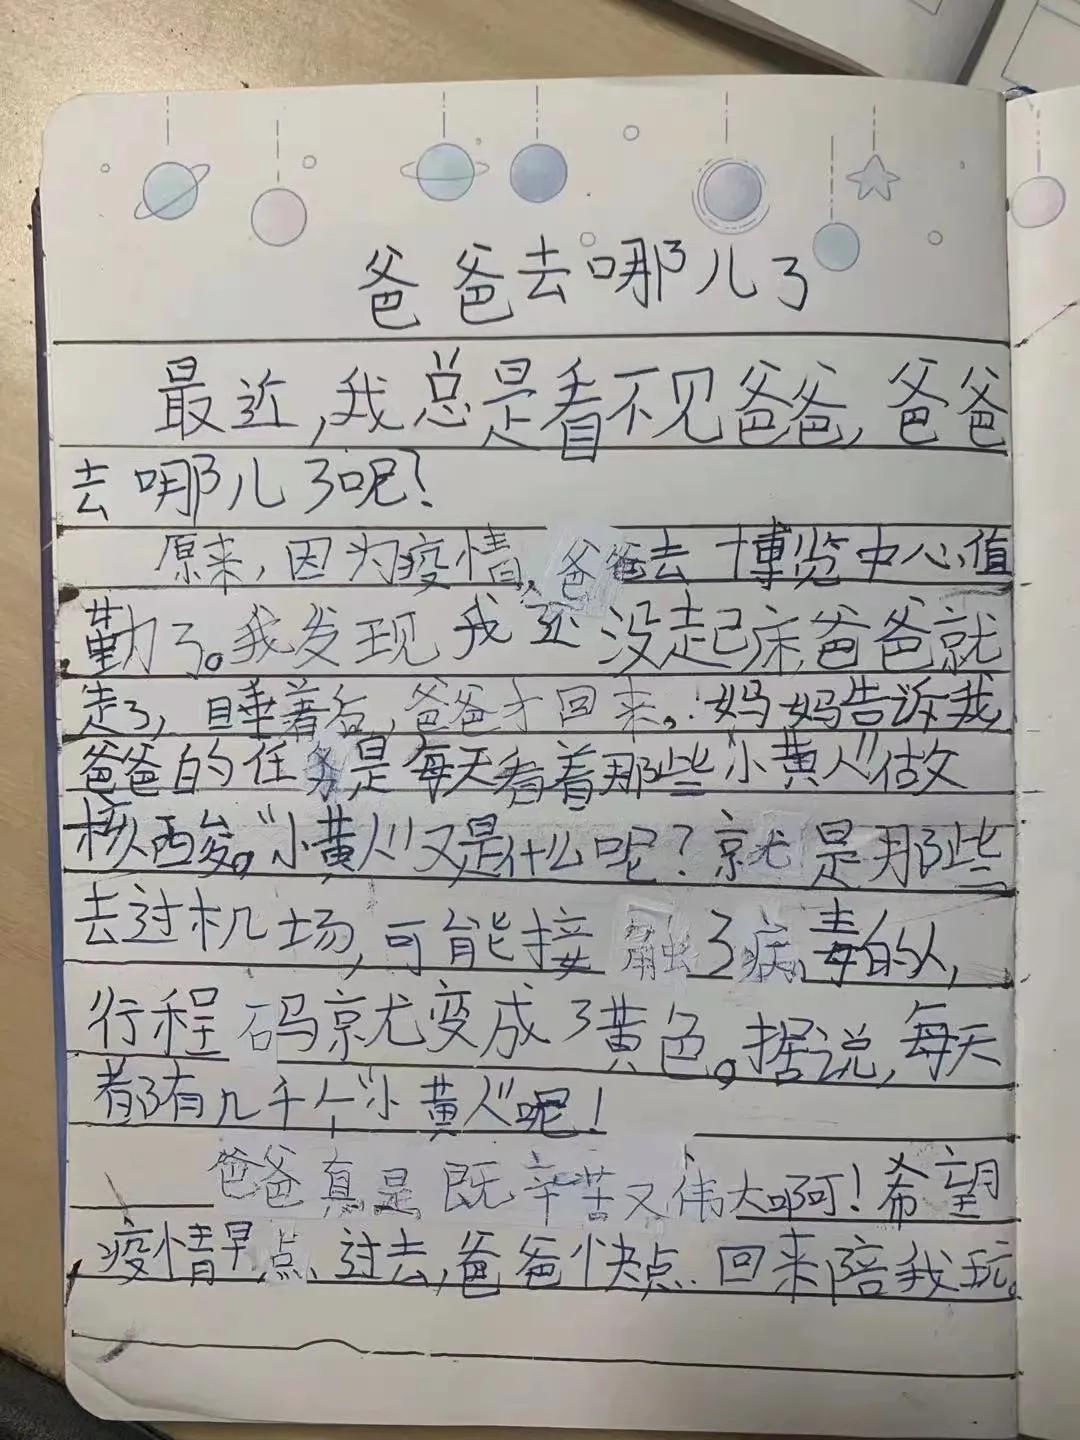 爸爸去哪儿了
最近,我总是看不见爸爸,爸爸
去哪儿了呢?
原来,因为疫情,爸爸去博览中心值
勤了。我发现我还没起床爸爸就
走了,睡着后,爸爸才回来。妈妈告诉我,
爸爸的任务是每天看着那些“小黄人”做
核酸。“小黄人”又是什么呢?就是那些
去过机场,可能接触了病毒的人,
行程码就变成了黄色。据说,每天
都有几千个“小黄人”呢!
爸爸真是既辛苦又伟大啊!希望
疫情早点过去,爸爸快点回来陪我玩。